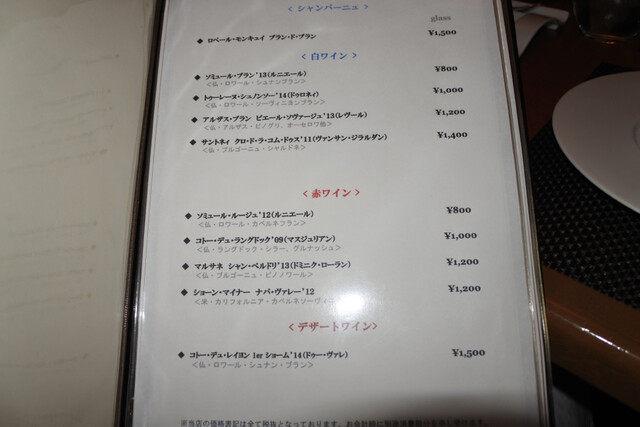 < シャンパーニュ >
glass
◆ ロベール・モンキュイ ブラン・ド・ブラン ¥1,500
< 白ワイン >
◆ ソミュール・ブラン'13(ルニエール) ¥800
<仏・ロワール・シュナンブラン>
◆ トゥーレーヌ・シュノンソー'14(ドゥロネィ) ¥1,000
<仏・ロワール・ソーヴィニヨンブラン>
◆ アルザス・ブラン ピエール・ソヴァージュ'13(レヴール) ¥1,200
<仏・アルザス・ピノグリ、オーセロワ他>
◆ サントネィ クロ・ド・ラ・コム・ドゥス'11(ヴァンサン・ジラルダン) ¥1,400
<仏・ブルゴーニュ・シャルドネ>
< 赤ワイン >
◆ ソミュール・ルージュ'12(ルニエール) ¥800
<仏・ロワール・カベルネフラン>
◆ コトー・デュ・ラングドック'09(マスジュリアン) ¥1,000
<仏・ラングドック・シラー、グルナッシュ>
◆ マルサネ シャン・ペルドリ'13(ドミニク・ローラン) ¥1,200
<仏・ブルゴーニュ・ピノノワール>
◆ ショーン・マイナー ナパ・ヴァレー'12 ¥1,200
<米・カリフォルニア・カベルネソーヴィニ
< デザートワイン>
◆ コトー・デュ・レイヨン 1er ショーム'14(ドゥー・ヴァレ) ¥1,500
<仏・ロワール・シュナン・ブラン>
※当店の価格表記は全て税抜となっております。お会計時に別途消費税を申し受けます。